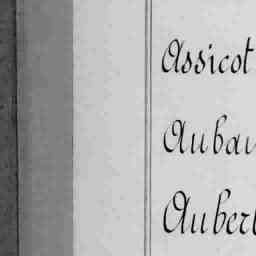 Assicot
Aubau
Aubert